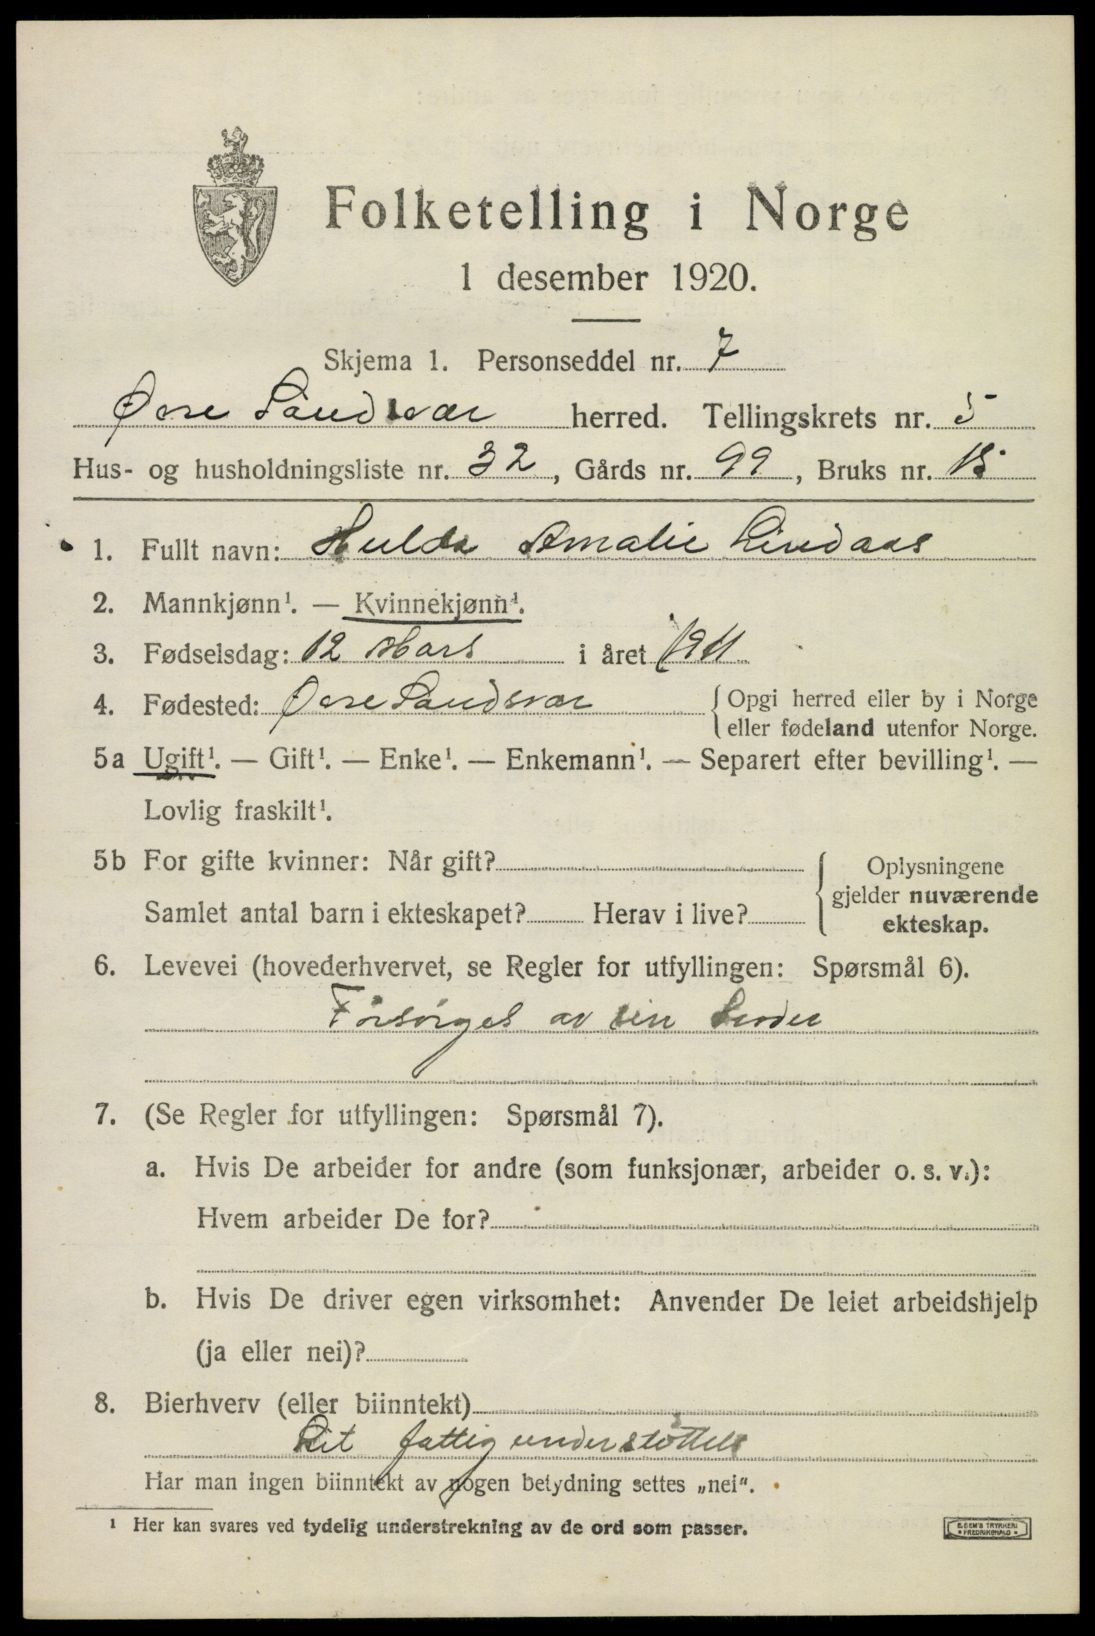 Folketelling i Norge
1 desember 1920.
Skjema 1. Personseddel nr. 7
Øvre Sandsvær herred. Tellingskrets nr. 5
Hus- og husholdningsliste nr. 32, Gårds nr. 99, Bruks nr. 15
1. Fullt navn: Hulda Amalie Lindaas
2. Mannkjønn¹. — Kvinnekjønn¹.
3. Fødselsdag: 12 Mars i året 1911
4. Fødested: Øvre Sandsvær {Opgi herred eller by i Norge
eller fødeland utenfor Norge.
5a Ugift¹. — Gift¹. — Enke¹. — Enkemann¹. — Separert efter bevilling¹. —
Lovlig fraskilt¹.
5b For gifte kvinner: Når gift?
Samlet antal barn i ekteskapet? Herav i live?
{Oplysningene
gjelder nuværende
ekteskap.
6. Levevei (hovederhvervet, se Regler for utfyllingen: Spørsmål 6).
Forsørges av sin
7. (Se Regler for utfyllingen: Spørsmål 7).
a. Hvis De arbeider for andre (som funksjonær, arbeider o. s. v.):
Hvem arbeider De for?
b. Hvis De driver egen virksomhet: Anvender De leiet arbeidshjelp
(ja eller nei)?
8. Bierhverv (eller biinntekt)
fattigunderstøttels
Har man ingen biinntekt av nogen betydning settes „nei“.
¹ Her kan svares ved tydelig understrekning av de ord som passer.